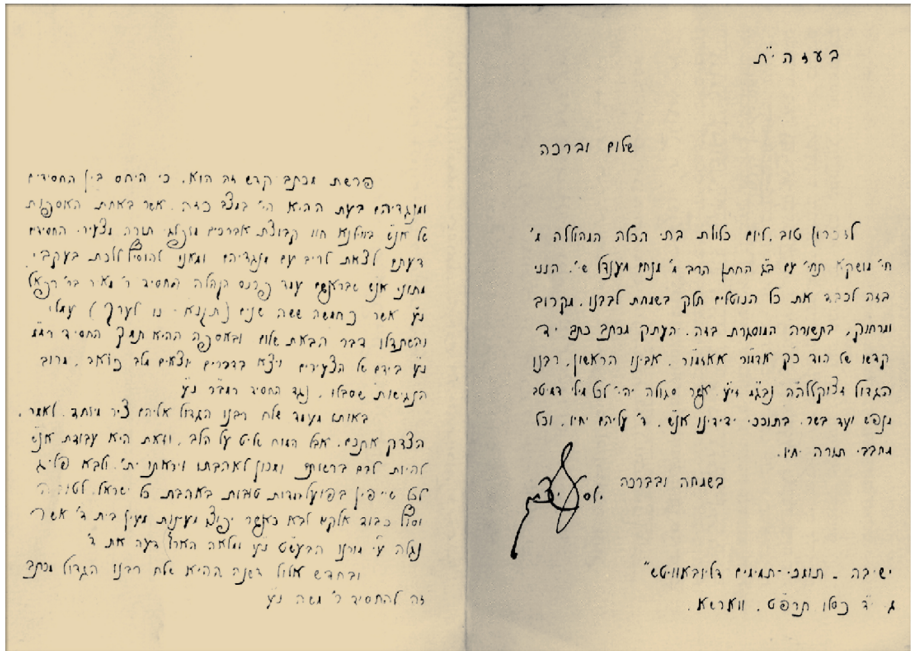 בעזה"ת
שלום וברכה
לזכרון טוב, ליום כלולת בתי הכלה המהוללה מ'
חי' מושקא תחי' עם ב"ג החתן הרב מ' מנחם מענדל שי', הנני
בזה לכבד את כל הנוטלים חלק בשמחת לבבנו, מקרוב
ומרחוק, בתשורה המוסגרת בזה, העתק מכתב כתב יד
קדשו של הוד כ"ק אדמו"ר אאזמו"ר, אבינו הראשון, רבנו
הגדול זצוקללה"ה נבג"מ זי"ע אשר סגולה יהי' לכל מילי דמיטב
מנפש ועד בשר, בתוככי ידידינו אנ"ש, ד' עליהם יחיו, וכל
מחבבי תורה יחיו.
בשמחה ובברכה
ישיבה - תומכי-תמימים דליובאוויטש"
ג' י"ד כסלו תרפ"ט, ווארשא.
פרשת מכתב קדש זה הוא, כי היחס בין החסידים
ומנגדיהם בעת ההיא הי' במצב כזה, אשר באחת האסיפות
של אנ"ש בווילנא חוו קבוצת אברכים מופלגי תורה מצעירי החסידים
דעתם לצאת לריב עם מנגדיהם ומאנו להוסיף ללכת בעקבי
מתוני אנ"ש שבראשם עמד פרנס הקהלה החסיד ר' מאיר בר' רפאל
נ"ע אשר כחמשה ששה שנים (תקנ"א - נו לערך) עמלו
והשתדלו דבר הבאת שלום ובאסיפה ההיא תמך החסיד רמ"מ
נ"ע בידם של הצעירים ויצא בדברים יוצאים מלב כואב, מרוב
הנגישות שסבלו, נגד החסיד רמב"ר נ"ע
באותו מעמד שלח רבנו הגדול אליהם ציר מיוחד, לאמר,
הצדק אתכם, אבל המוח שליט על הלב, וזאת היא עבודת אנ"ש
להיות לבם ברשותם ומכוון לאהבתו ויראתו ית', ולבא פליג
לכל שייפין בפועל מדות טובות באהבת כל ישראל,
וסוף כבוד אלקים לבא כאשר יפוצו מעינות מעין בית ד' אשר
נגלה ע"י מורנו הבעש"ט נ"ע ומלאה הארץ דעה את ד'
ובחדש אלול דשנה ההיא שלח רבנו הגדול מכתב
זה להחסיד ר' משה נ"ע